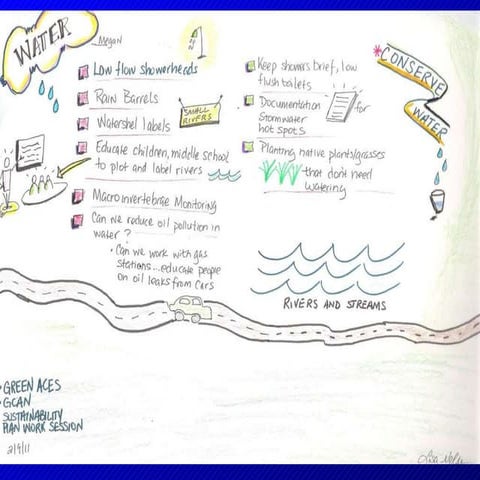 WATER
Megan
Low flow showerheads
Rain Barrels
Watershed labels
SMALL
RIVERS
Educate children, middle school
to plot and label rivers
Macroinvertebrae Monitoring
Can we reduce oil pollution in
water?
• Can we work with gas
stations...educate people
on oil leaks from cars
Keep showers brief, low
flush toilets
Documentation for
Stormwater
hot spots
Planting native plants/grasses
that don't need
watering
*CONSERVE
WATER
RIVERS AND STREAMS
• GREEN ACES
• GCAN
SUSTAINABILITY
PLAN WORK SESSION
2/9/11
Lisa